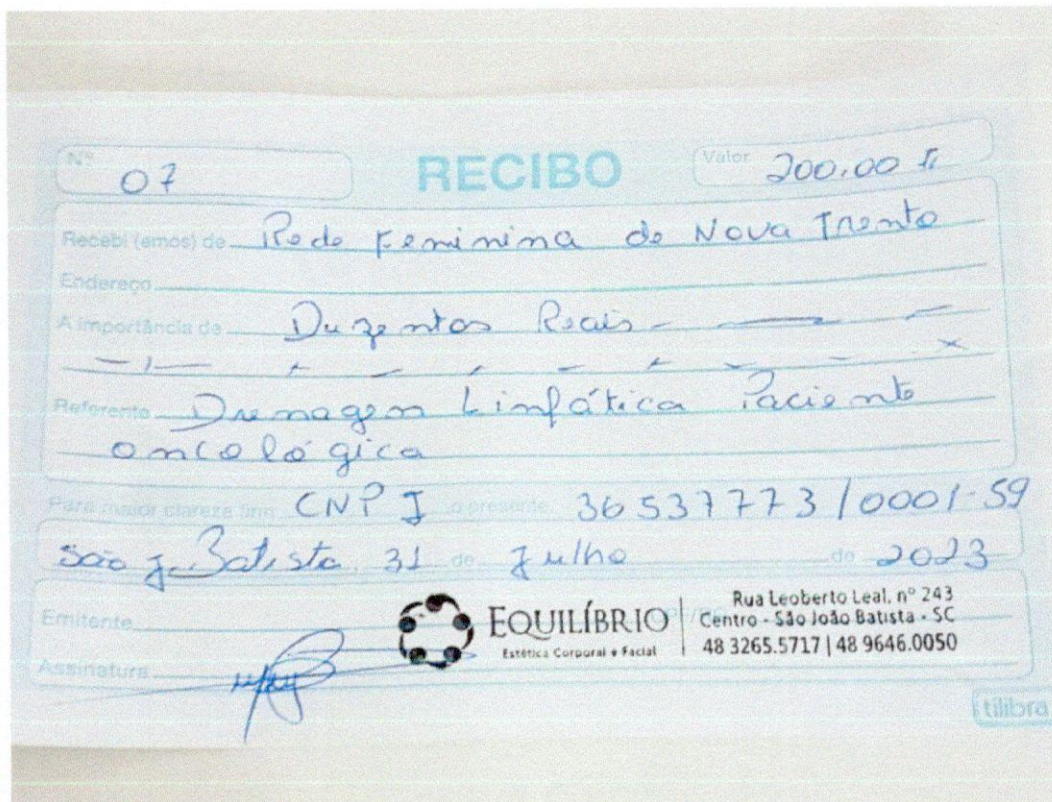 Nº 07 RECIBO Valor 200,00
Recebi (emos) de Rede Feminina de Nova Trento
Endereço
A importância de Duzentos Reais
Referente Drenagem Linfática Paciente
oncológica
Para maior clareza firm CNPJ o presente 36537773/0001-59
São J. Batista 31 de Julho de 2023
Emitente
EQUILÍBRIO
Estética Corporal e Facial
Rua Leoberto Leal, nº 243
Centro - São João Batista - SC
48 3265.5717 | 48 9646.0050
Assinatura
tilibra